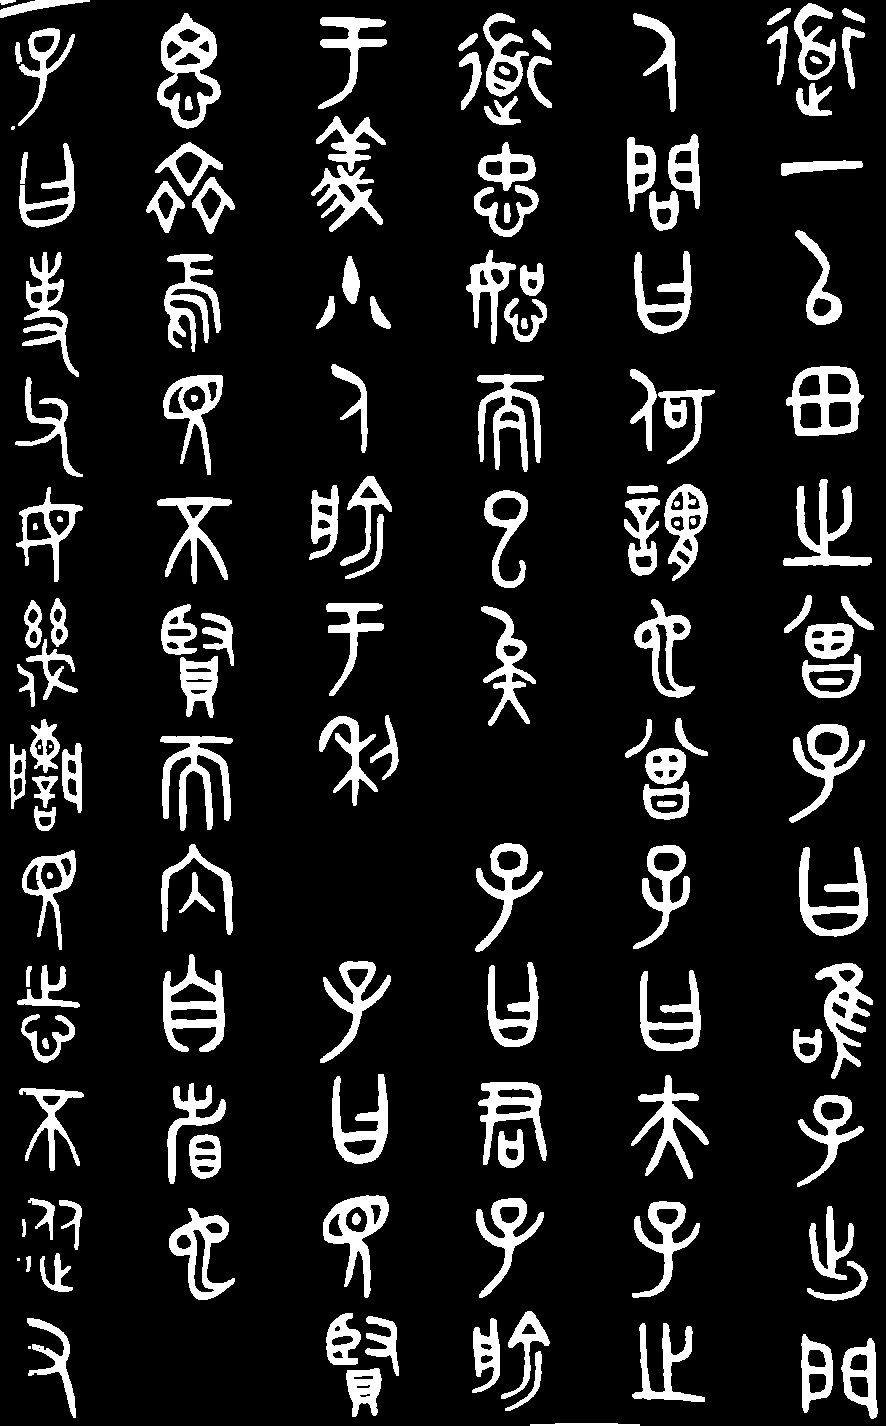 道一以毌之曾子曰唯子出門
人問曰何謂也曾子曰夫子之
道忠恕而已矣 子曰君子喻
于義小人喻于利 子曰見賢
思齊焉見不賢而內自省也
子曰事父母幾諫見志不從又